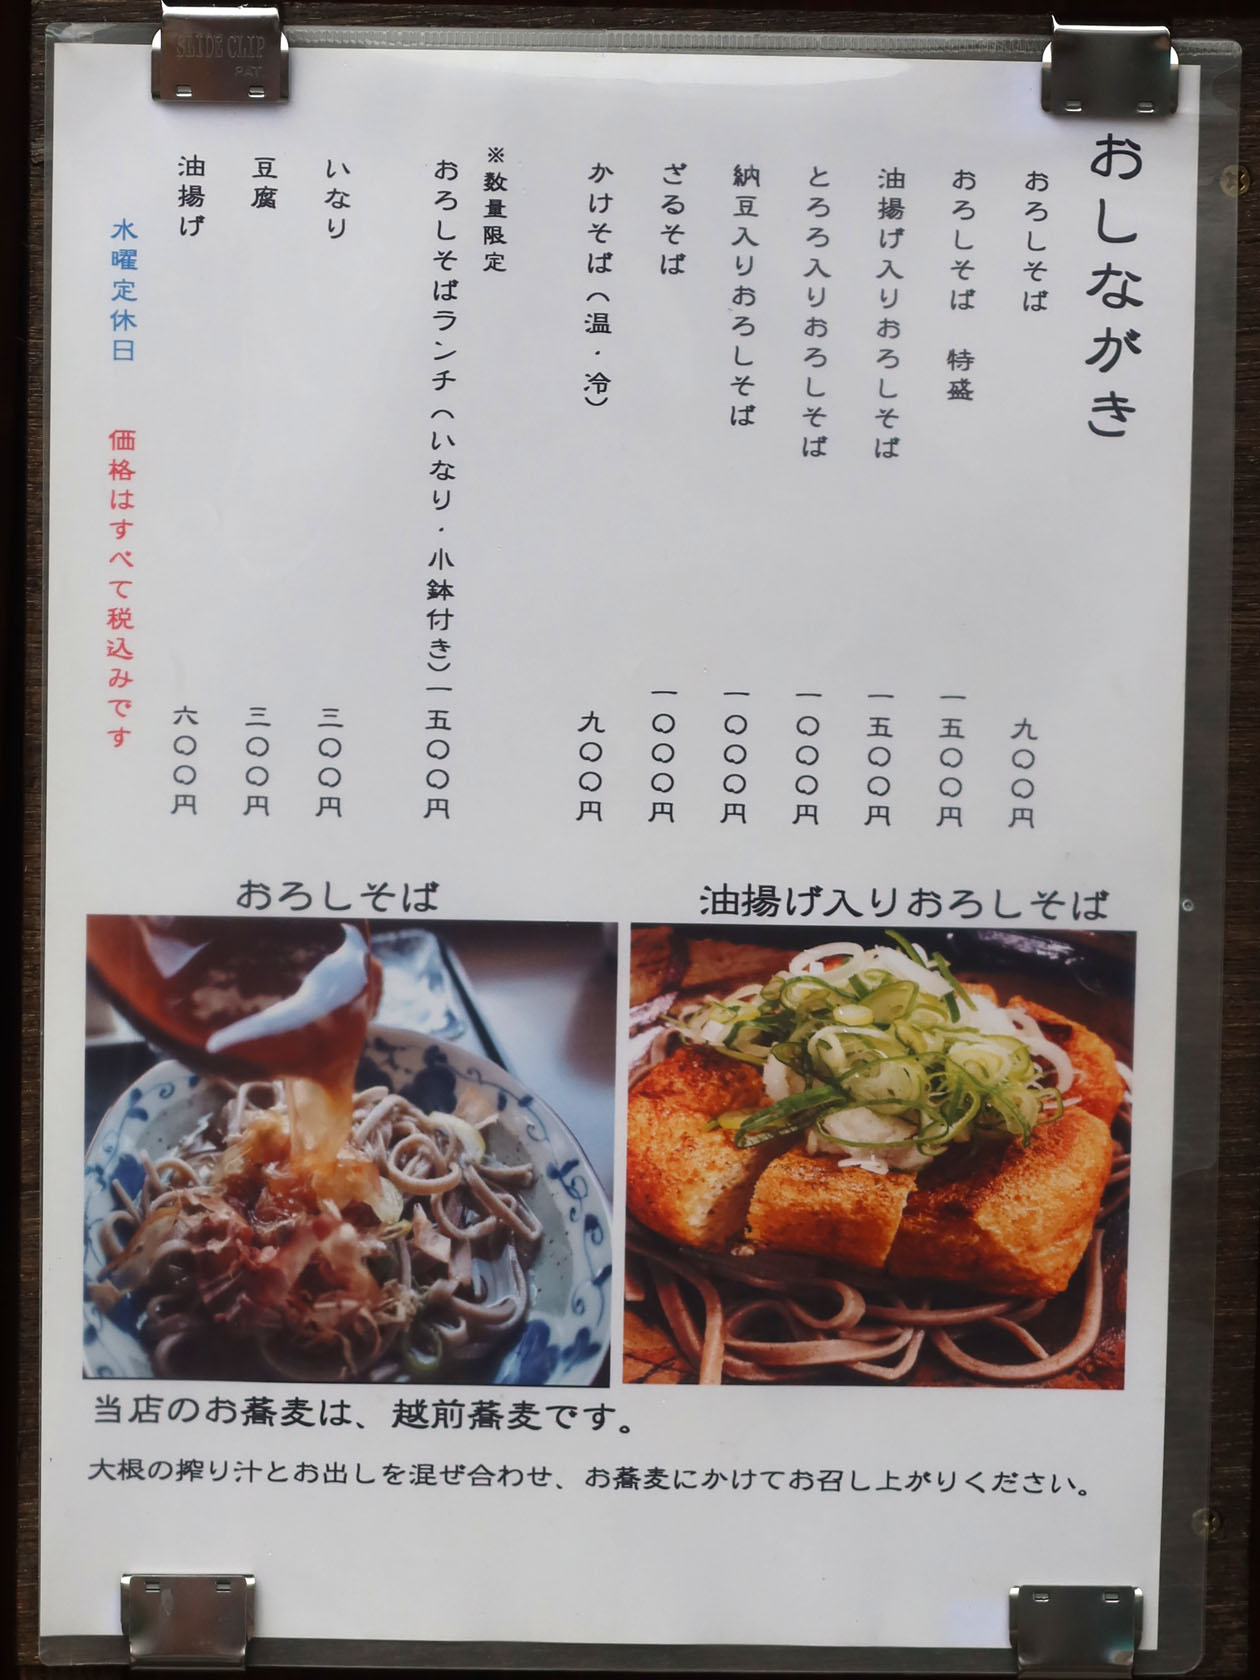 おしながき
おろしそば 九〇〇円
おろしそば 特盛 一五〇〇円
油揚げ入りおろしそば 一五〇〇円
とろろ入りおろしそば 一〇〇〇円
納豆入りおろしそば 一〇〇〇円
ざるそば 一〇〇〇円
かけそば（温・冷） 九〇〇円
※数量限定
おろしそばランチ（いなり・小鉢付き）一五〇〇円
いなり 三〇〇円
豆腐 三〇〇円
油揚げ 六〇〇円
水曜定休日 価格はすべて税込みです
おろしそば
油揚げ入りおろしそば
当店のお蕎麦は、越前蕎麦です。
大根の搾り汁とお出しを混ぜ合わせ、お蕎麦にかけてお召し上がりください。
SLIDE CLIP
PAT.